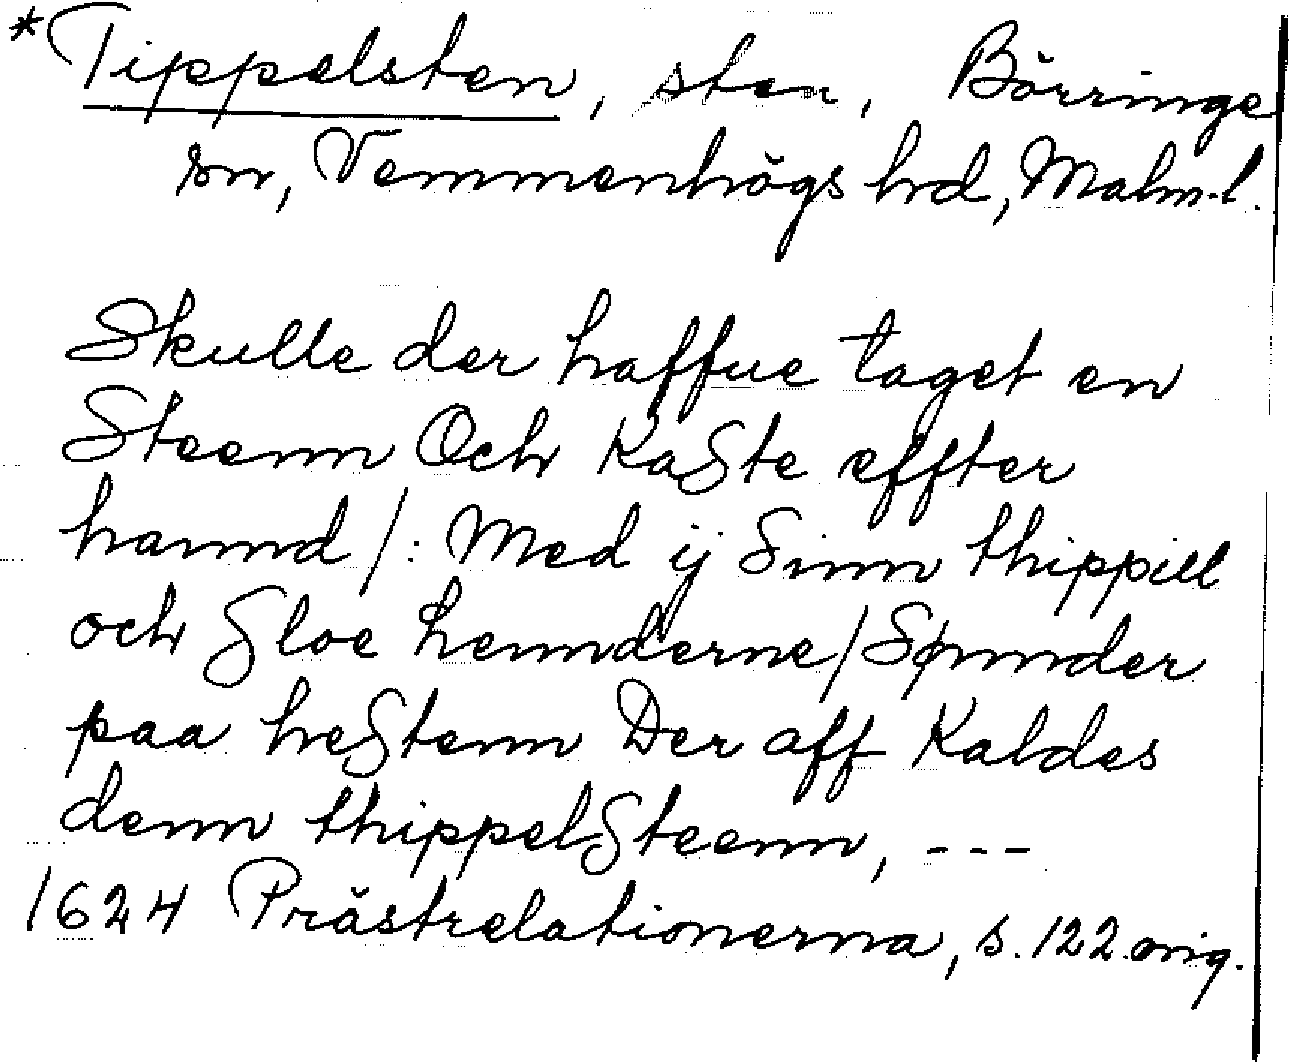 *Tippelsten, sten, Börringe
sn, Vemmenhögs hd, Malm.l.
Skulle der haffue taget en
Steenn Och KaSte effter
hannd /: Med ij Sinn thippill
och Sloe hennderne / Sønnder
paa heStenn Der aff Kaldes
denn thippelSteenn, ---
1624 Prästrelationerna, s. 122. orig.